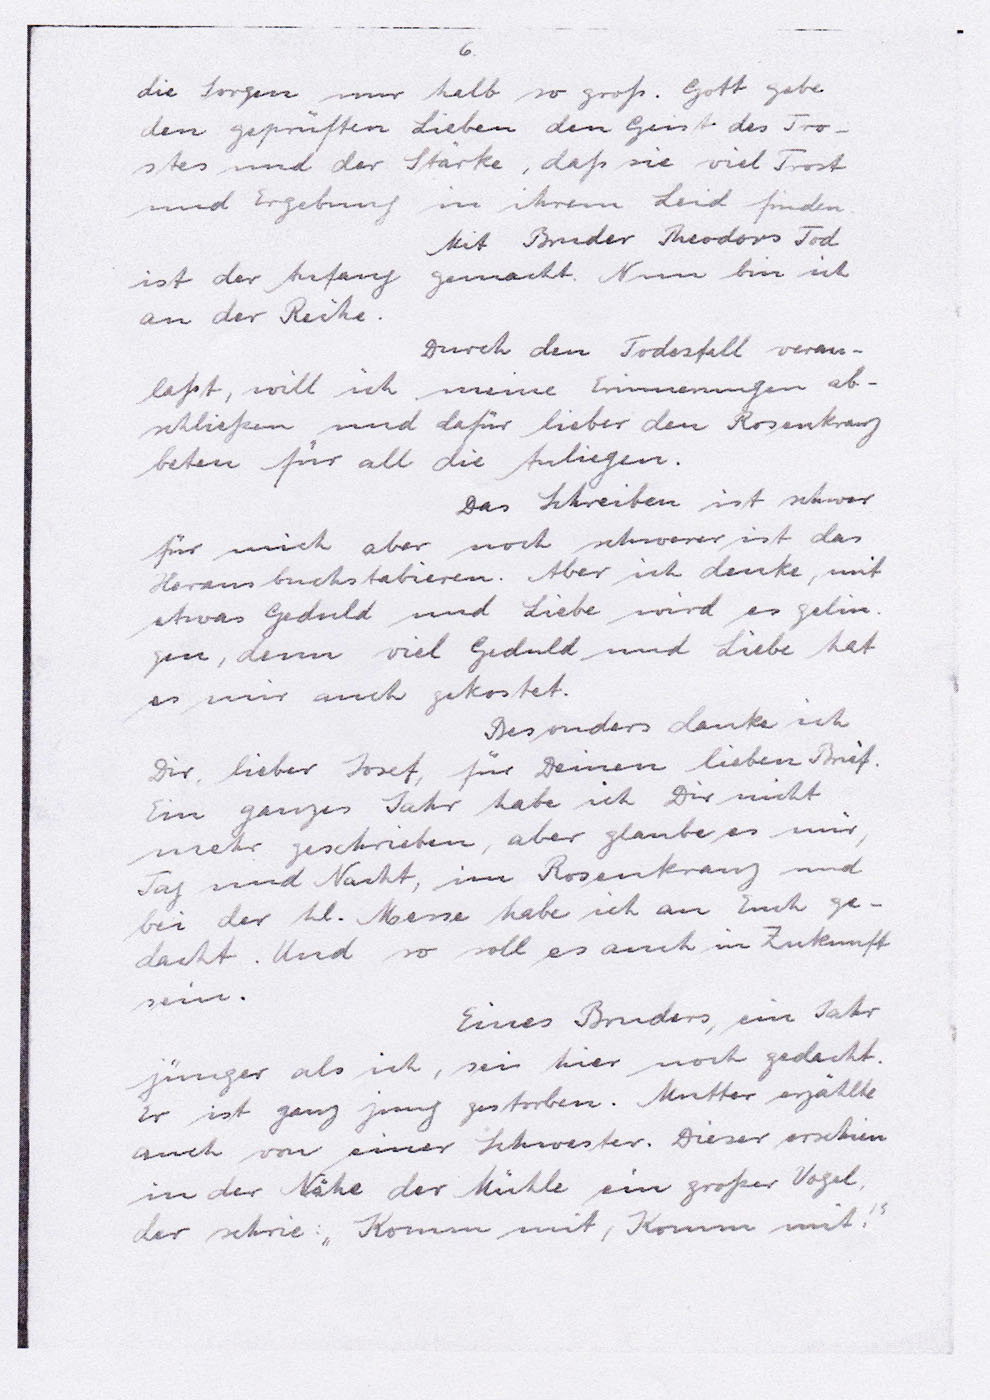 6.
die Sorgen nur halb so groß. Gott gebe
den geprüften Lieben den Geist des Tro-
stes und der Stärke, daß sie viel Trost
und Ergebung in ihrem Leid finden.
Mit Bruder Theodors Tod
ist der Anfang gemacht. Nun bin ich
an der Reihe.
Durch den Todesfall veran-
laßt, will ich meine Erinnerungen ab-
schließen und dafür lieber den Rosenkranz
beten für all die Anliegen.
Das Schreiben ist schwer
für mich aber noch schwerer ist das
Herausbuchstabieren. Aber ich denke, mit
etwas Geduld und Liebe wird es gelin-
gen, denn viel Geduld und Liebe hat
es mir auch gekostet.
Besonders danke ich
Dir, lieber Josef, für Deinen lieben Brief.
Ein ganzes Jahr habe ich Dir nicht
mehr geschrieben, aber glaube es mir,
Tag und Nacht, im Rosenkranz und
bei der hl. Messe habe ich an Euch ge-
dacht. Und so soll es auch in Zukunft
sein.
Eines Bruders, ein Jahr
jünger als ich, sei hier noch gedacht.
Er ist ganz jung gestorben. Mutter erzählte
auch von einer Schwester. Dieser erschien
in der Nähe der Mühle ein großer Vogel,
der schrie: „Komm mit, Komm mit!"